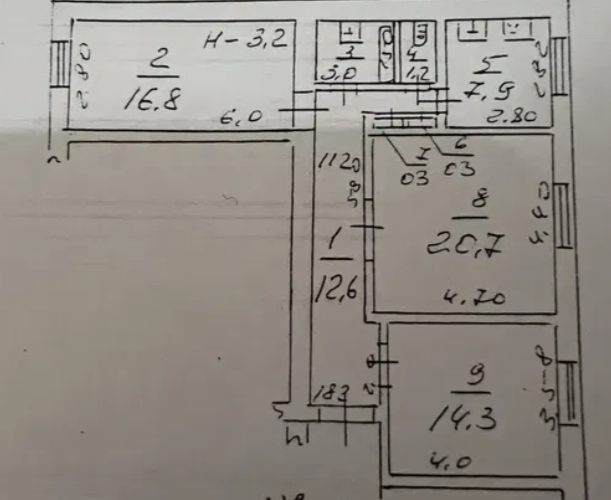 H-3,2
2
16.8
2.80
6,0
3
5,0
4
1,2
5
7,9
2.80
1120
7
03
6
03
8
20,7
4.40
4.70
1
12,6
183
9
14.3
4.0